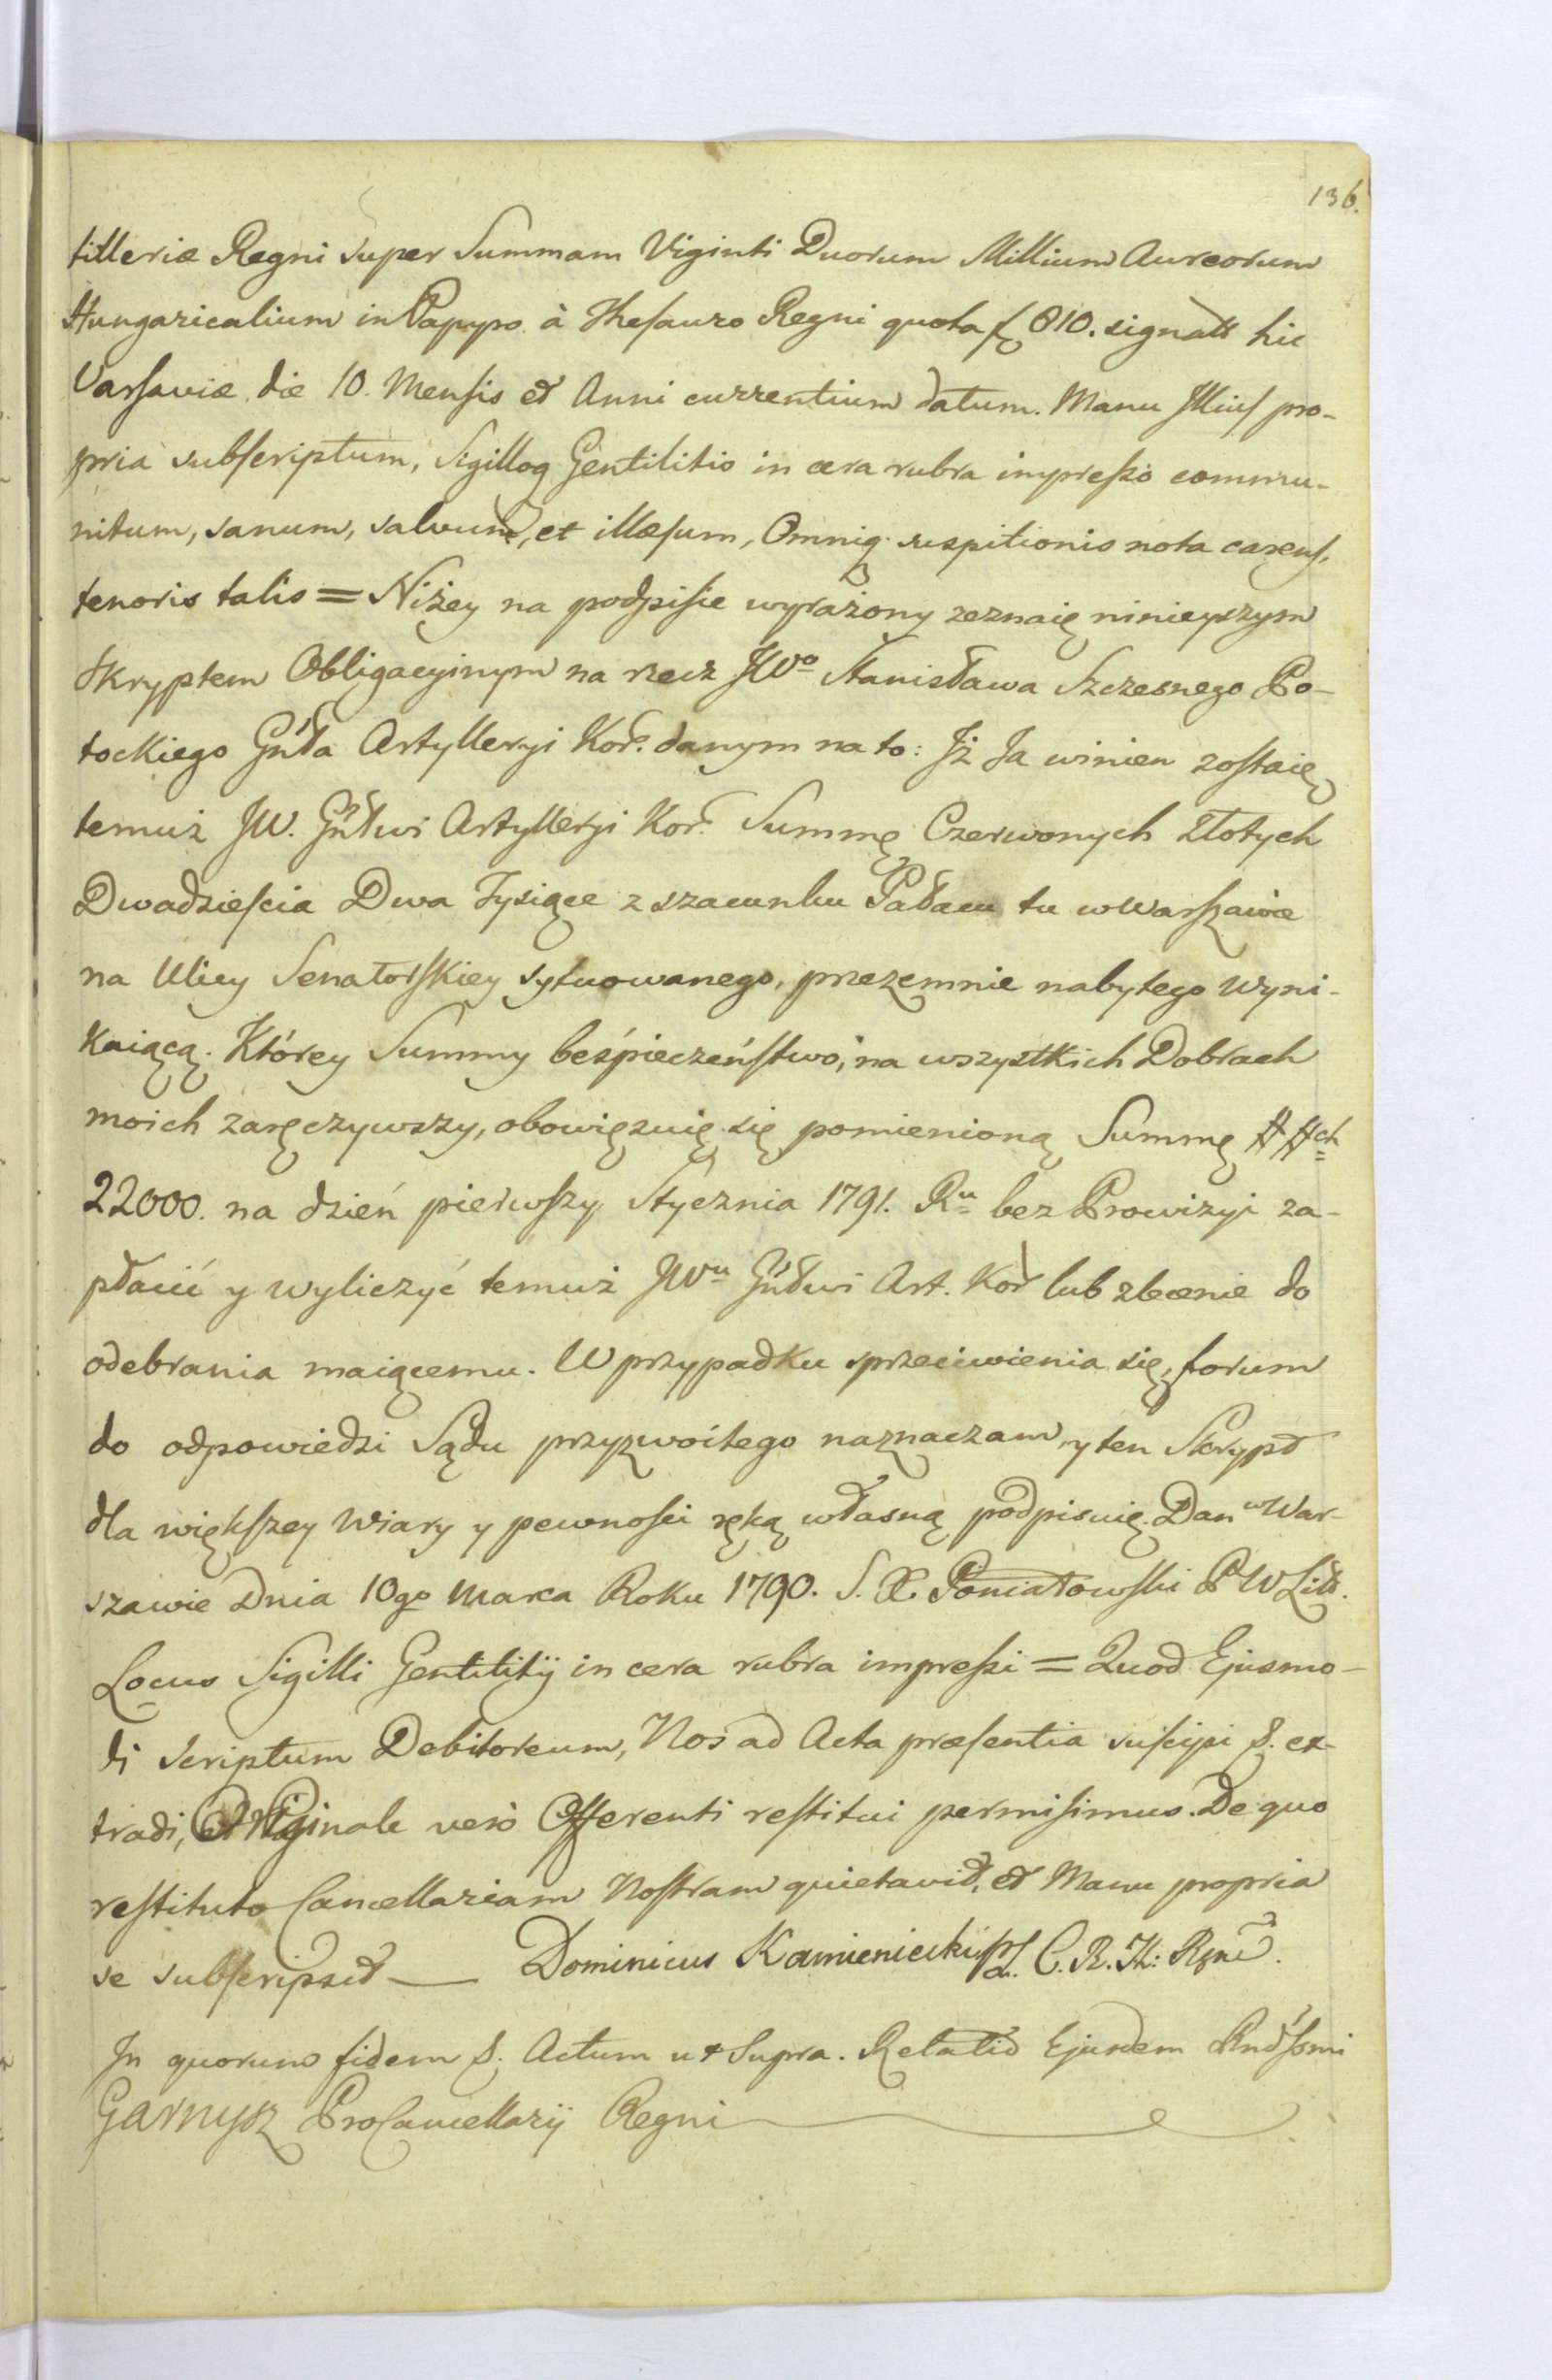 136.
tilleriæ Regni super Summam Viginti Duorum Millium Aureorum
Hungaricalium in Papyro à Thesauro Regni quota f 810. signatt hic
Varsaviæ die 10. Mensis et Anni currentium datum. Manu Illius pro-
pria subscriptum, Sigilloq Gentilitio in cera rubra impresso commu-
nitum, sanum, salvum, et illæsum, Omniq suspitionis nota carens,
tenoris talis = Niżey na podpisie wyrażony zeznaię ninieyszym
Skryptem Obligacyinym na rzecz JWo Stanisława Szczesnego Po-
tockiego Gńła Artylleryi Kor. danym na to: Iż Ja winien zostaię
temuż JW. Gńłwi Artylleryi Kor. Summę Czerwonych Złotych
Dwadziescia Dwa Tysiące z szacunku Pałacu tu w Warszawie
na Ulicy Senatorskiey sytuowanego, przezemnie nabytego wyni-
kaiącą. Którey Summy beśpieczeństwo, na wszystkich Dobrach
moich zaręczywszy, obowięzuię się pomienioną Summę ##ch
22000. na dzień pierwszy Stycznia 1791. Ru bez Prowizyi za-
płacić y wyliczyć temuż JWu Gńłwi Art. Kor lub zlecenie do
odebrania maiącemu. W przypadku sprzeciwienia się, forum
do odpowiedzi Sądu przyzwoitego naznaczam, y ten Skrypt
dla większey Wiary y pewnosci ręką własną podpisuię. Dan w War-
szawie Dnia 10go Marca Roku 1790. S. X. Poniatowski P W Litt.
Locus Sigilli Gentilitij in cera rubra impressi = Quod Ejusmo-
di Scriptum Debitoreum, Nos ad Acta præsentia suscipi &. ex-
tradi, Originale verò Offerenti restitui permisimus. De quo
restituto Cancellariam Nostram quietavit, et Manu propria
se subscripsit — Dominicus Kamieniecki C. R. Th:
In quorum fidem &. Actum ut Supra. Relatio Ejusdem Rndssmi
Garnysz ProCancellarij Regni